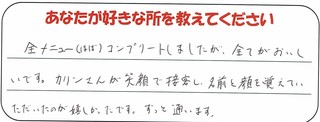 あなたが好きな所を教えてください
全メニュー(ほぼ)コンプリートしましたが、全てがおいし
いです。カリンさんが笑顔で接客し、名前と顔を覚えてい
ただいたのが嬉しかったです。ずっと通います。